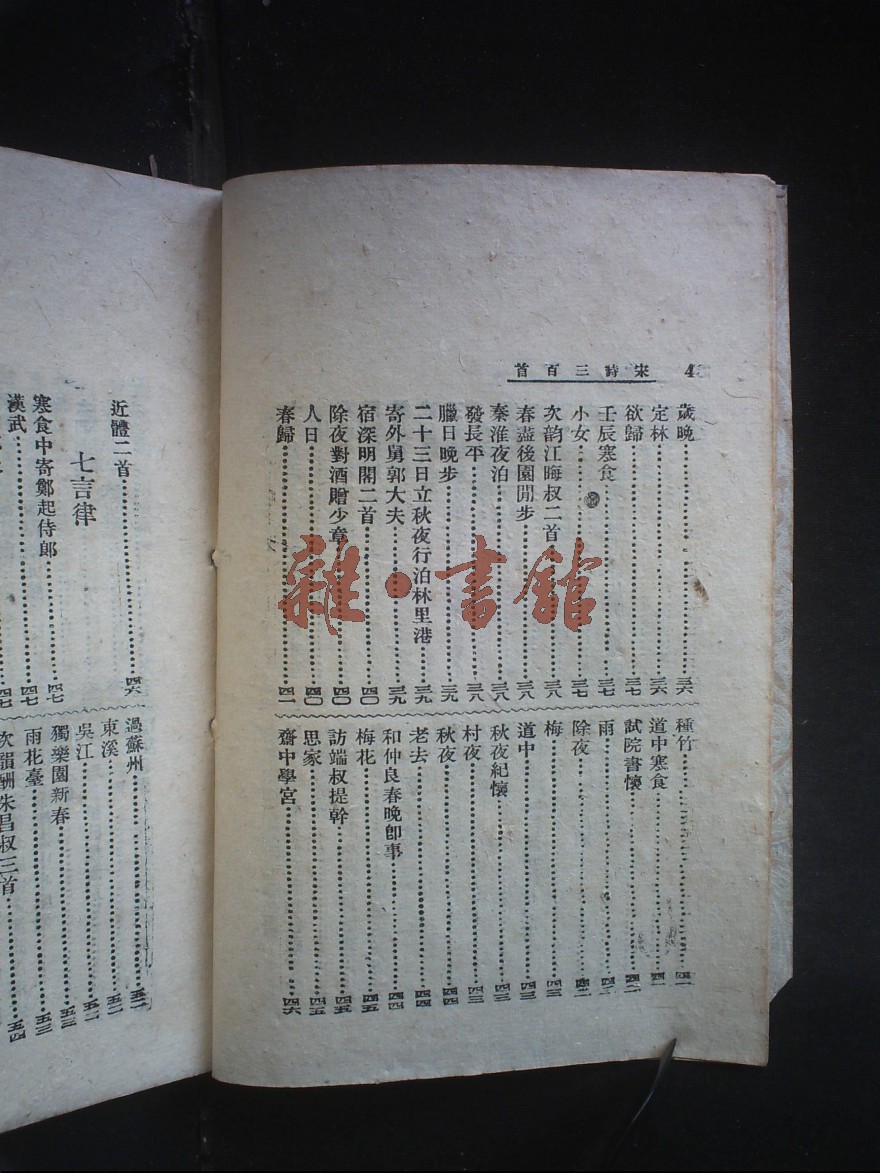 宋詩三百首 4
歲晚 三六
定林 三六
欲歸 三七
壬辰寒食 三七
小女 三七
次韵江晦叔二首 三八
春盡後園閒步 三八
秦淮夜泊 三八
發長平 三八
臘日晚步 三九
二十三日立秋夜行泊林里港 三九
寄外舅郭大夫 三九
宿深明閣二首 四〇
除夜對酒贈少章 四〇
人日 四〇
春歸 四一
種竹 四一
道中寒食 四一
試院書懷 四二
雨 四二
除夜 四二
梅 四二
道中 四三
秋夜紀懷 四三
村夜 四三
秋夜 四四
老去 四四
和仲良春晚卽事 四四
梅花 四五
訪端叔提幹 四五
思家 四五
齋中學宮 四六
近體二首 四六
七言律
寒食中寄鄭起侍郎 四七
漢武 四七
四七
過蘇州 五二
東溪 五二
吳江 五二
獨樂園新春 五三
雨花臺 五三
次韻酬朱昌叔三首 五四
雜·書館